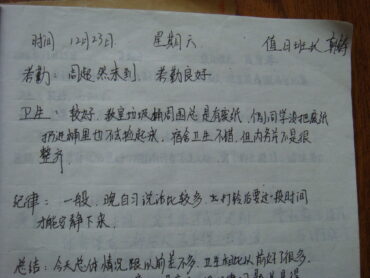 时间 12月23日 星期六 值日班长
考勤：周超然未到 考勤良好
卫生：较好，教室垃圾桶周围总是有废纸，个别同学没把废纸
扔进桶里也不去捡起来，宿舍卫生不错，但内务不是很
整齐
纪律：一般，晚自习说话比较多，上打铃后要过一段时间
才能安静下来。
总结：今天总体情况跟以前差不多，卫生相比以前好了很多，